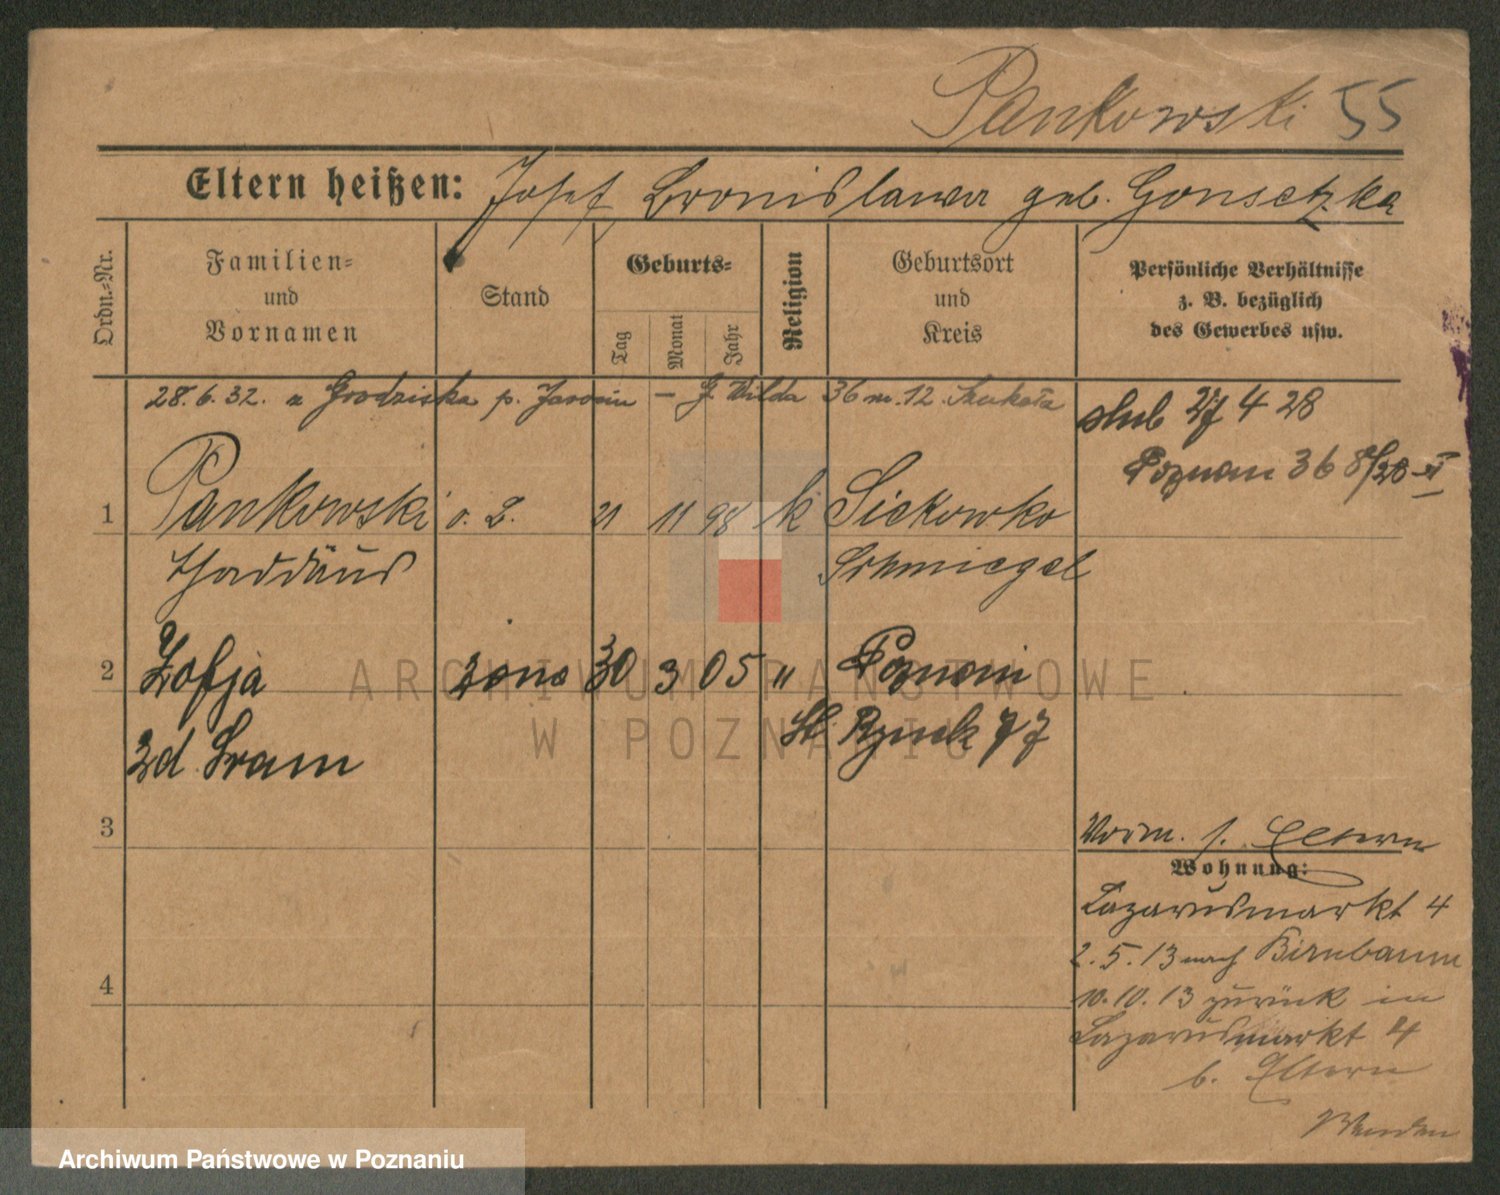 Pankowski 55
Eltern heißen: Josef, Bronislawa geb. Gonsetzka
Ordn.-Nr.
Familien-
und
Vornamen
Stand
Geburts-
Tag
Monat
Jahr
Religion
Geburtsort
und
Kreis
Persönliche Verhältnisse
z. B. bezüglich
des Gewerbes usw.
28.6.32. z Grodziska p. Jarocin – G. Wilda 36 m. 12
slub 27 4 28
Poznan 368/28 II
1 Pankowski o. B. 21 11 98 k Sickowko
Thaddäus Schmiegel
2 Zofja żona 30 3 05 " Poznań
zd Sram St. Rynek 77
3
Vorm. s. Eltern
Wohnung:
Lazarusmarkt 4
2.5.13 nach Birnbaum
10.10.13 zurück in
4
Lazarusmarkt 4
b. Eltern
ARCHIWUM PAŃSTWOWE
W POZNANIU
Archiwum Państwowe w Poznaniu